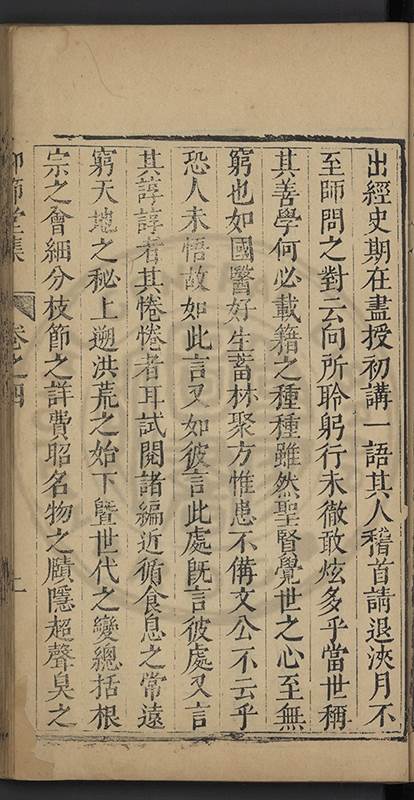 出經史期在盡授初講一語其人稽首請退浹月不
至師問之對云向所聆躬行未徹敢炫多乎當世稱
其善學何必載籍之種種雖然聖賢覺世之心至無
窮也如國醫好生蓄林聚方惟患不備文公不云乎
恐人未悟故如此言又如彼言此處旣言彼處又言
其諄諄者其惓惓者耳試閱諸編近循食息之常遠
窮天地之秘上遡洪荒之始下曁世代之變總括根
宗之會細分枝節之詳費昭名物之賾隱超聲臭之
節堂集 卷之四